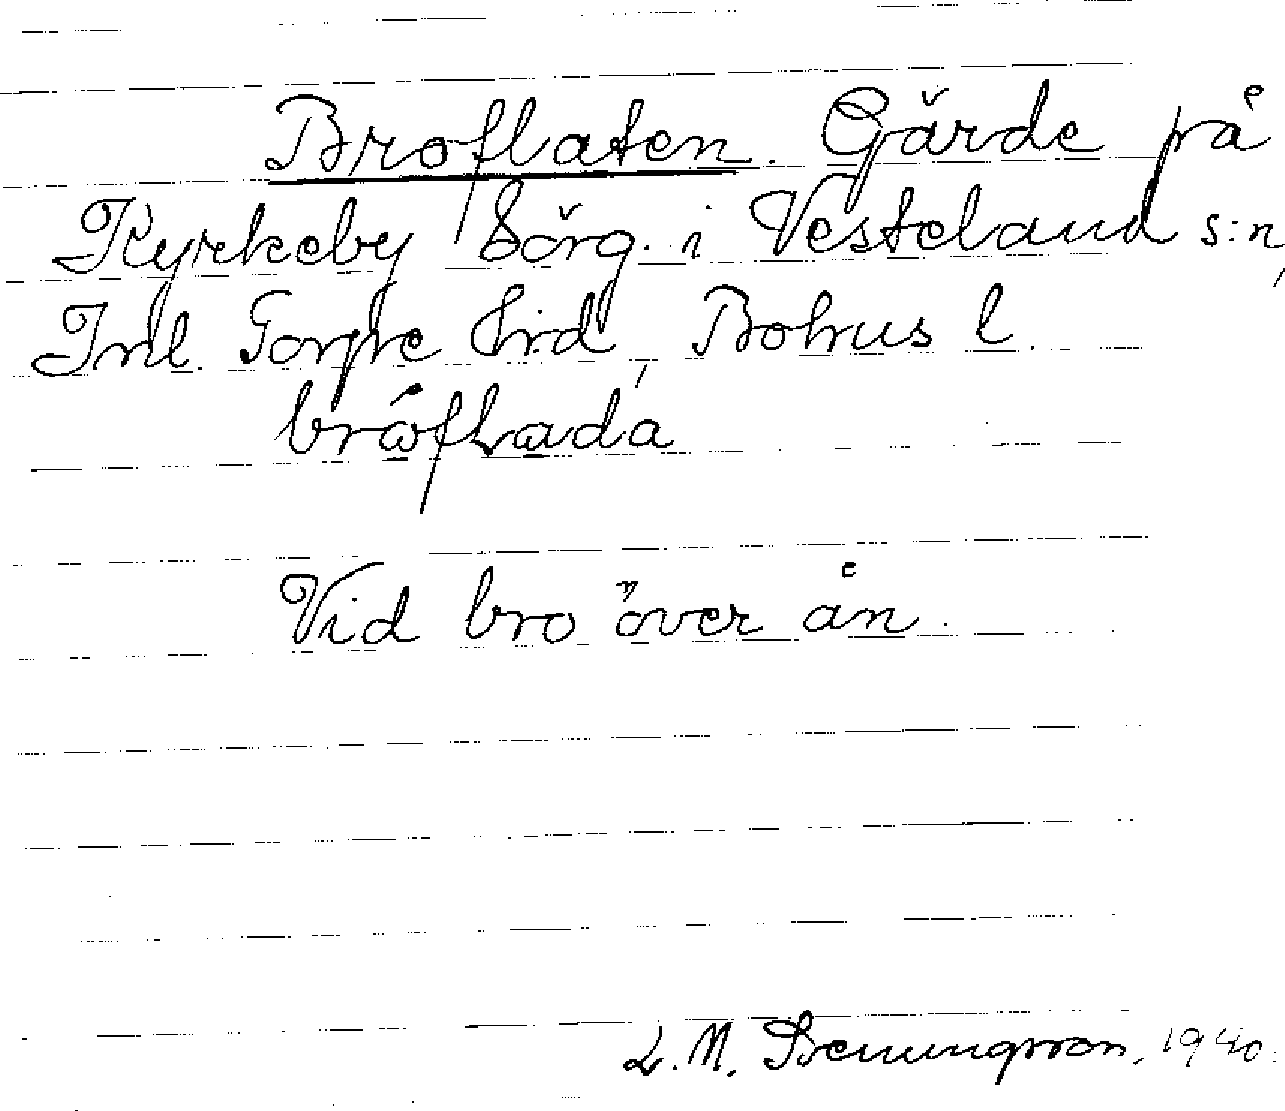 Broflaten. Gärde på
Kyrkeby Sörg. i Vesteland s:n,
Inl. Torpe hrd, Bohus l.
bråfladá
Vid bro över ån.
L. M. 1940.